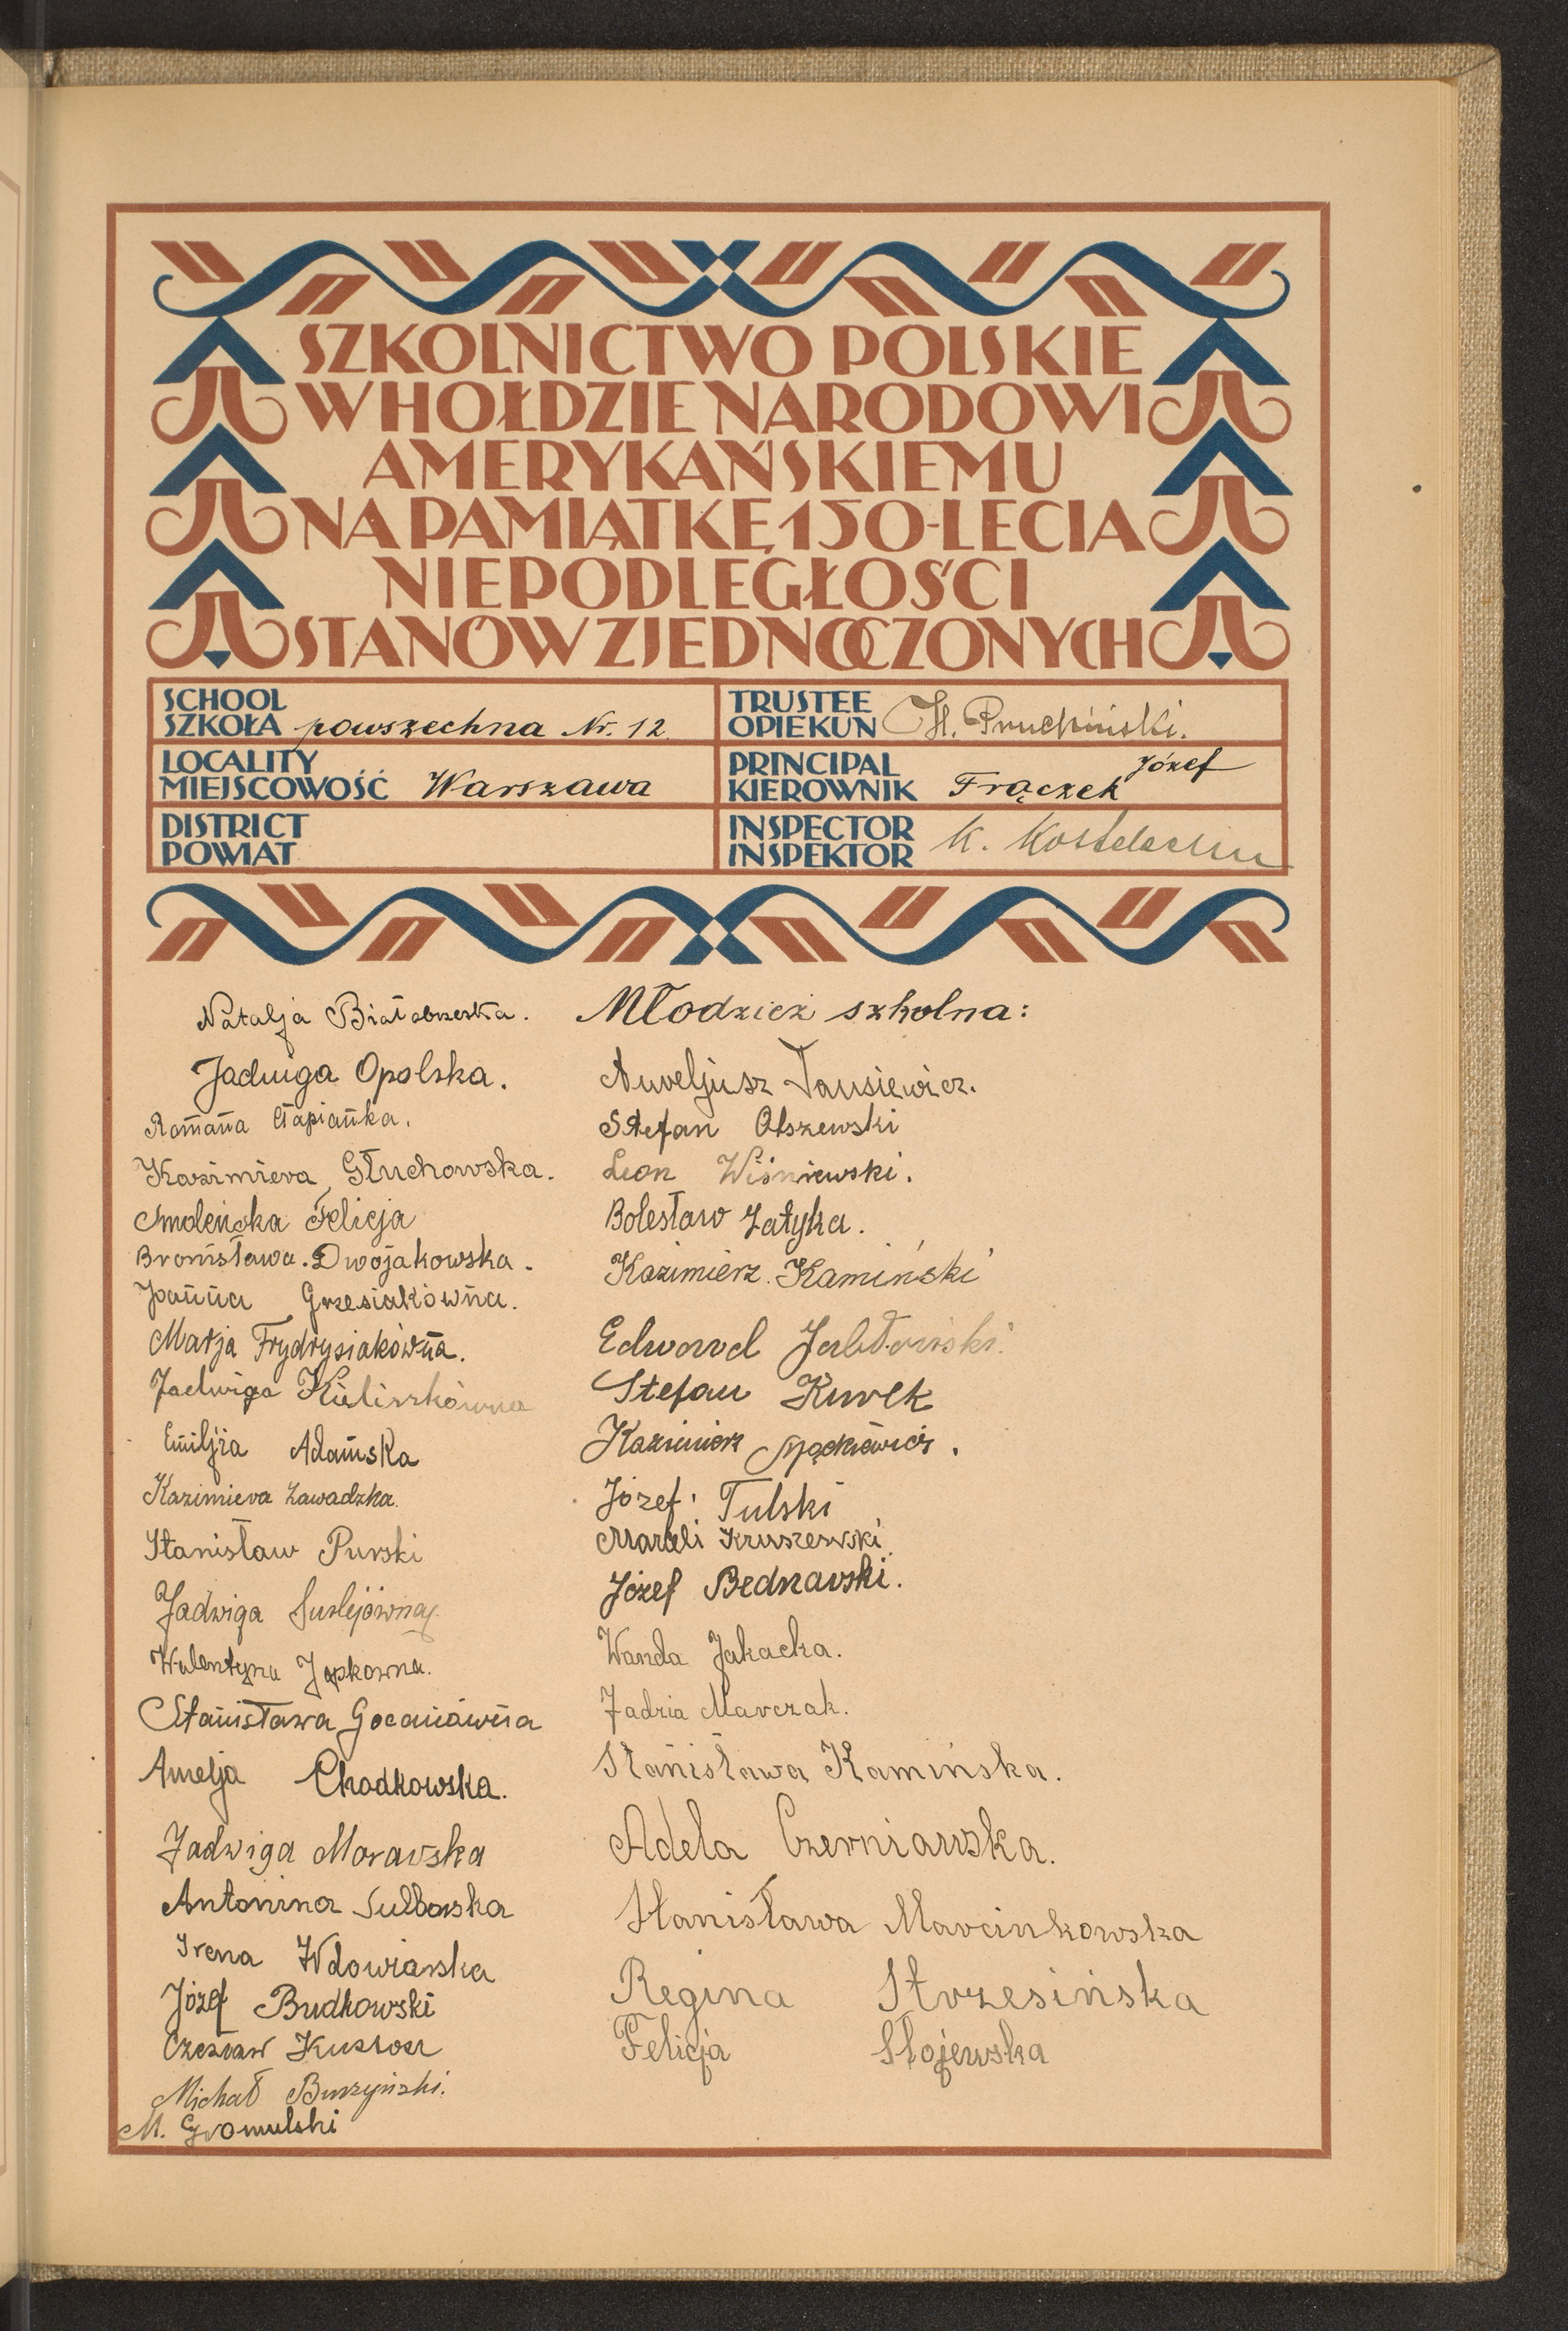 SZKOLNICTWO POLSKIE
W HOŁDZIE NARODOWI
AMERYKAŃSKIEMU
NA PAMIĄTKĘ 150-LECIA
NIEPODLEGŁOŚCI
STANÓW ZJEDNOCZONYCH
SCHOOL
SZKOŁA powszechna Nr. 12.
TRUSTEE
OPIEKUN
LOCALITY
MIEJSCOWOŚĆ Warszawa
PRINCIPAL
KIEROWNIK Frączek Józef
DISTRICT
POWIAT
INSPECTOR
INSPEKTOR K.
Natalja Białobrzeska.
Jadwiga Opolska.
Romana Człapianka.
Kazimiera Głuchowska.
Smoleńska Felicja
Bronisława. Dwojakowska.
Joanna Grzesiakówna.
Marja Frydrysiakówna.
Jadwiga Kieliszkówna
Emilja Adamska
Kazimiera Zawadzka.
Stanisław Purski
Jadwiga
Walentyna Jopkowna.
Stanisława Gocanówna
Amelja Chodkowska.
Jadwiga Morawska
Antonina Sulborska
Irena Wdowiarska
Józef Budkowski
Czesław
Michał Burzyński.
M. Gromulski
Młodzież szkolna:
Aureljusz
Stefan Olszewski
Leon Wiśniewski.
Bolesław Zatyka.
Kazimierz. Kamiński
Edward Jabłoński.
Stefan Kurek
Kazimierz Mackiewicz.
Józef. Tulski
Marceli Kruszewski.
Józef Bednarski.
Wanda Jakacka.
Jadzia Marczak.
Stanisława Kamińska.
Adela Czerniawska.
Stanisława Marcinkowska
Regina Strzesińska
Felicja Stojewska